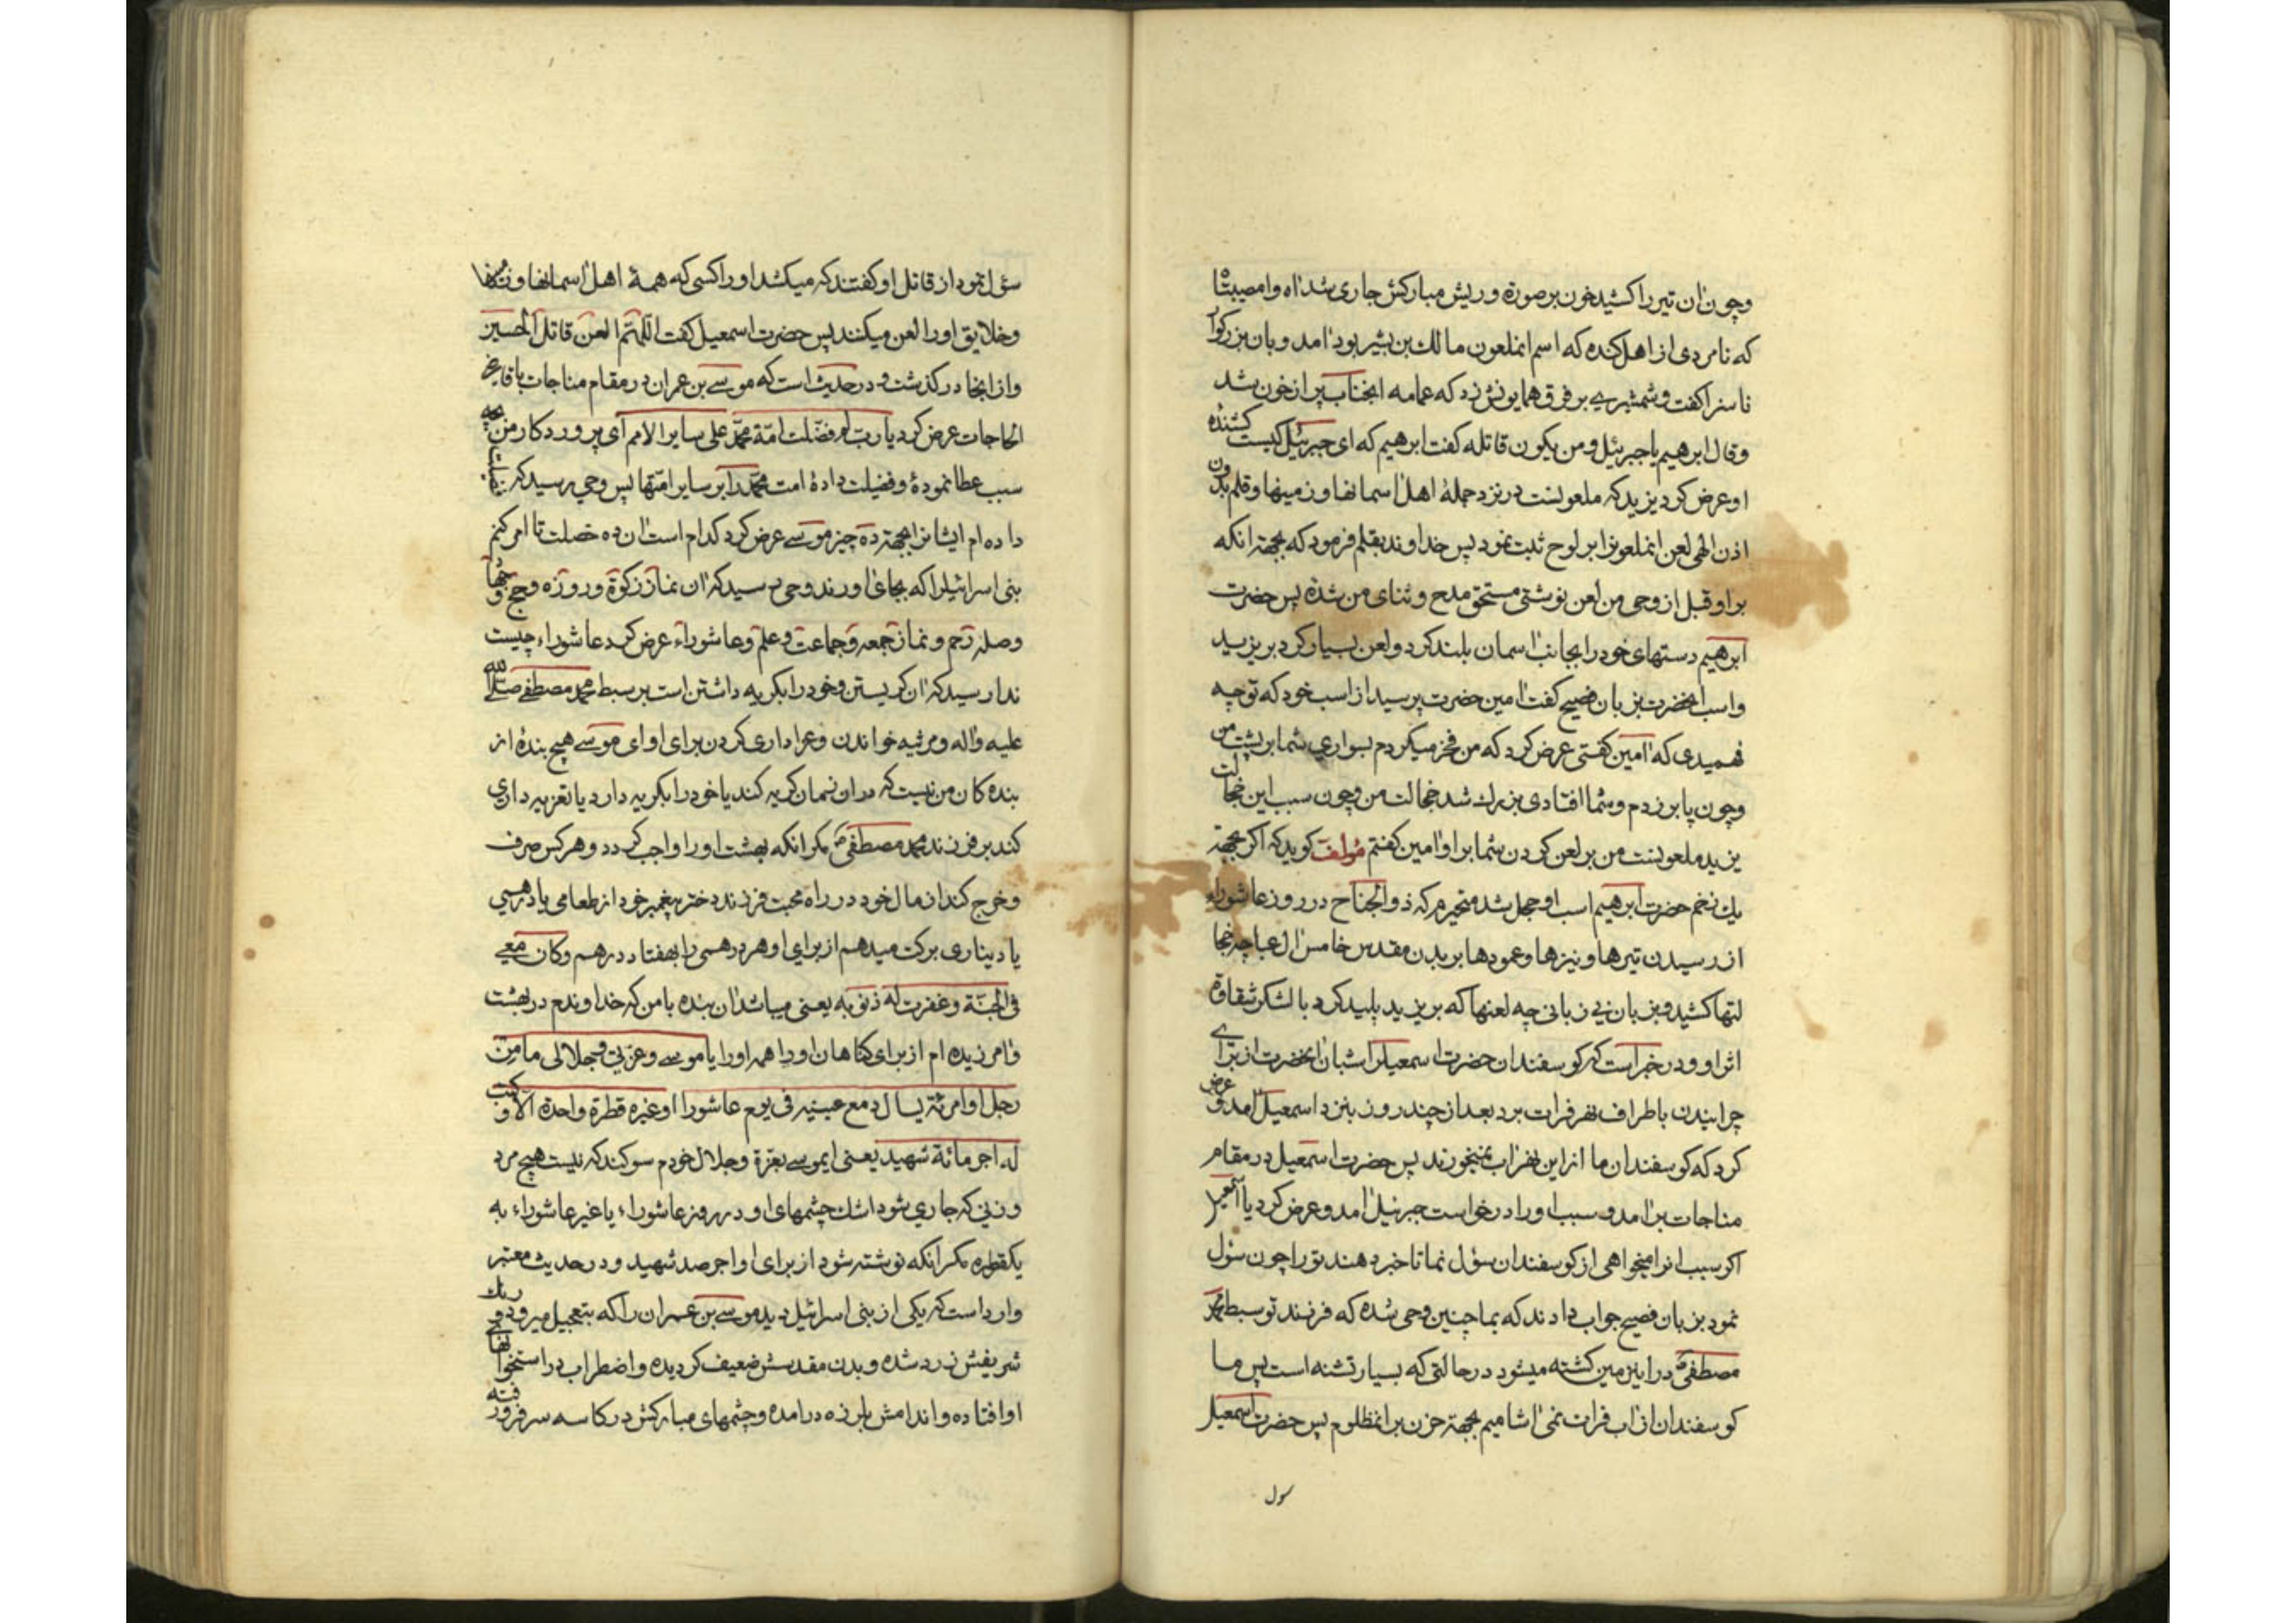 وچون ان تیر را کشید خون بر صورة وریش مبارکش جاری شد اه وامصیبتاه
که نامردی از اهل کنده که اسم انملعون مالك بن بشیر بود امد و بان بزرکوار
ناسزا کفت وشمشیری بر فرق همایونش زد که عمامه انجناب پر از خون شد
وقال ابرهیم یا جبرئیل ومن یکون قاتله کفت ابرهیم که ای جبرئیل کیست کشندۀ
او عرض کرد یزید که ملعونست در نزد جملۀ اهل اسمانها و زمینها وقلم بدون
اذن الهی لعن انملعونرا بر لوح ثبت نمود پس خداوند بقلم فرمود که بجهة انکه
بر او قبل از وحی من لعن نوشتی مستحق مدح و ثنای من شدۀ پس حضرت
ابرهیم دستهای خود را بجانب اسمان بلند کرد ولعن بسیار کرد بر یزید
واسب انحضرت بزبان فصیح کفت امین حضرت پرسید از اسب خود که تو چه
فهمیدی که امین کفتی عرض کرد که من فخر میکردم بسواری شما بر پشت من
وچون پا بر زدم وشما افتادی بزرك شد خجالت من وچون سبب این خجالت
یزید ملعونست من بر لعن کردن شما بر او امین کفتم مؤلف کوید که اکر بجهة
یك زخم حضرت ابرهیم اسب او خجل شد متحیرم که ذو الجناح در روز عاشوراء
از رسیدن تیرها و نیزها وعمودها بر بدن مقدس خامس ال عبا چه خجا
لتها کشید وبزبان بی زبانی چه لعنها که بر یزید پلید کرد با لشکر شقاوة
اثر او و در خبر است که کوسفندان حضرت اسمعیلرا شبان انحضرت از برای
چرانیدن باطراف نهر فرات برد بعد از چند روز بنزد اسمعیل امد و عرض
کرد که کوسفندان ما از این نهر اب نمیخورند پس حضرت اسمعیل در مقام
مناجات بر امد و سبب او را درخواست جبرئیل امد و عرض کرد یا اسمعیل
اکر سبب انرا میخواهی از کوسفندان سؤل نما تا خبر دهند تو را چون سؤل
نمود بزبان فصیح جواب دادند که بما چنین وحی شده که فرزند تو سبط محمد
مصطفیؐ در این زمین کشته میشود در حالتی که بسیار تشنه است پس ما
کوسفندان از اب فرات نمی اشامیم بجهة حزن بر انمظلوم پس حضرت اسمعیل
سول
سؤل نمود از قاتل او کفتند که میکشد او را کسی که همۀ اهل اسمانها و زمینها
وخلایق او را لعن میکنند پس حضرت اسمعیل کفت اللهم العن قاتل الحسین
واز انجا درکذشت و در حدیث است که موسی بن عمران در مقام مناجات با قاضی
الحاجات عرض کرد یا رب لم فضلت امة محمد علی سایر الامم ای پروردکار من بچه
سبب عطا نمودۀ وفضیلت دادۀ امت محمد را بر سایر امتها پس وحی رسید که فضیلت
داده ام ایشانرا بجهة ده چیز موسی عرض کرد کدام است ان ده خصلت تا امر کنم
بنی اسرائیلرا که بجای اورند وحی رسید که ان نماز زکوة و روزه وحج وجهاد
وصلۀ رحم و نماز جمعه وجماعت وعلم وعاشوراء عرض کرد عاشوراء چیست
ندا رسید که ان کریستن وخود را بکریه داشتن است بر سبط محمد مصطفی صلی الله
علیه واله ومرثیه خواندن وعزاداری کردن برای او ای موسی هیچ بندۀ از
بنده کان من نیست که در ان زمان کریه کند یا خود را بکریه دارد یا تعزیه داری
کند بر فرزند محمد مصطفیؐ مکر انکه بهشت او را واجب کردد و هر کس صرف
وخرج کند از مال خود در راه محبت فرزند دختر پیغمبر خود از طعامی یا درهمی
یا دیناری برکت میدهم از برای او هر درهمی را بهفتاد درهم وکان معی
فی الجنة وغفرت له ذنوبه یعنی میباشد ان بنده با من که خداوندم در بهشت
وامرزیده ام از برای کناهان او را همه او را یا موسی وعزتی وجلالی ما من
رجل او امرئة یسال دمع عینیه فی یوم عاشورا او غیره قطرة واحدة الا وکتب
له اجر مائة شهید یعنی ایموسی بعزة وجلال خودم سوکند که نیست هیچ مرد
وزنی که جاری شود اشك چشمهای او در روز عاشوراء یا غیر عاشوراء به
یکقطره مکر انکه نوشته شود از برای او اجر صد شهید و در حدیث معتبر
وارد است که یکی از بنی اسرائیل دید موسی بن عمران را که بتعجیل میرود و رنك
شریفش زرد شده و بدن مقدسش ضعیف کردیده واضطراب در استخوانهای
او افتاده واندامش بلرزه درامده وچشمهای مبارکش در کاسه سر فرو رفته